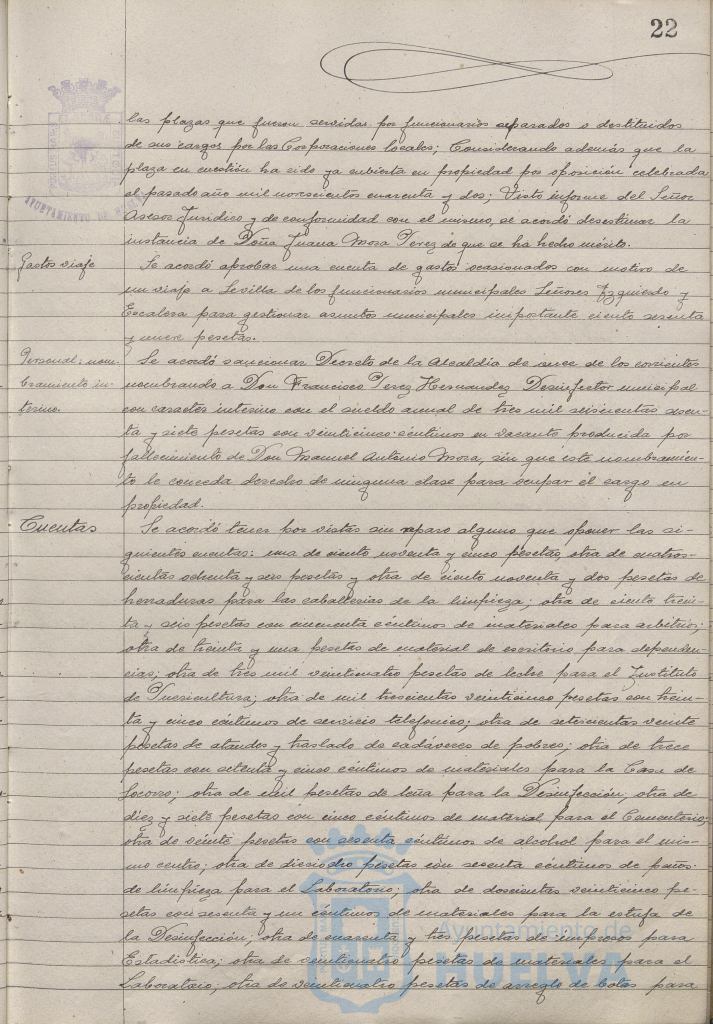 22
las plazas que fueron servidas por funcionarios separados o destituidos
de sus cargos por las Corporaciones locales; Considerando además que la
plaza en cuestión ha sido ya cubierta en propiedad por oposición celebrada
el pasado año mil novecientos cuarenta y dos; Visto informe del Señor
Asesor Jurídico y de conformidad con el mismo, se acordó desestimar la
instancia de Doña Juana Mora Perez de que se ha hecho mérito.
Gastos viaje
Se acordó aprobar una cuenta de gastos ocasionados con motivo de
un viaje a Sevilla de los funcionarios municipales Señores Izquierdo y
Escalera para gestionar asuntos municipales importante ciento sesenta
y nueve pesetas.
Personal: nom-
bramiento in-
terino.
Se acordó sancionar Decreto de la Alcaldía de once de los corrientes
nombrando a Don Francisco Perez Hernandez Desinfector municipal
con caracter interino con el sueldo anual de tres mil seiscientas sesen-
ta y siete pesetas con veinticinco céntimos en vacante producida por
fallecimiento de Don Manuel Antonio Mora, sin que este nombramien-
to le conceda derecho de ninguna clase para ocupar el cargo en
propiedad.
Cuentas
Se acordó tener por vistas sin reparo alguno que oponer las si-
guientes cuentas: una de ciento noventa y cinco pesetas, otra de cuatros-
cientas ochenta y seis pesetas y otra de ciento noventa y dos pesetas de
herraduras para las caballerías de la limpieza; otra de ciento trein-
ta y seis pesetas con cincuenta céntimos de materiales para arbitrios;
otra de treinta y una pesetas de material de escritorio para dependen-
cias; otra de tres mil veinticuatro pesetas de leche para el Instituto
de Puericultura; otra de mil troscientas veinticinco pesetas con trein-
ta y cinco céntimos de servicio telefonico; otra de setescientas veinte
pesetas de ataudes y traslado de cadáveres de pobres; otra de trece
pesetas con setenta y cinco céntimos de materiales para la Casa de
Socorro; otra de mil pesetas de leña para la Desinfección; otra de
diez y siete pesetas con cinco céntimos de material para el Cementerio;
otra de veinte pesetas con sesenta céntimos de alcohol para el mis-
mo centro; otra de dieciocho pesetas con sesenta céntimos de paños
de limpieza para el Laboratorio; otra de doscientas veinticinco pe-
setas con sesenta y un céntimos de materiales para la estufa de
la Desinfección; otra de cuarenta y tres pesetas de impresos para
Estadistica; otra de veinticuatro pesetas de materiales para el
Laboratorio; otra de veinticuatro pesetas de arreglo de botas para
Ayuntamiento de
HUELVA